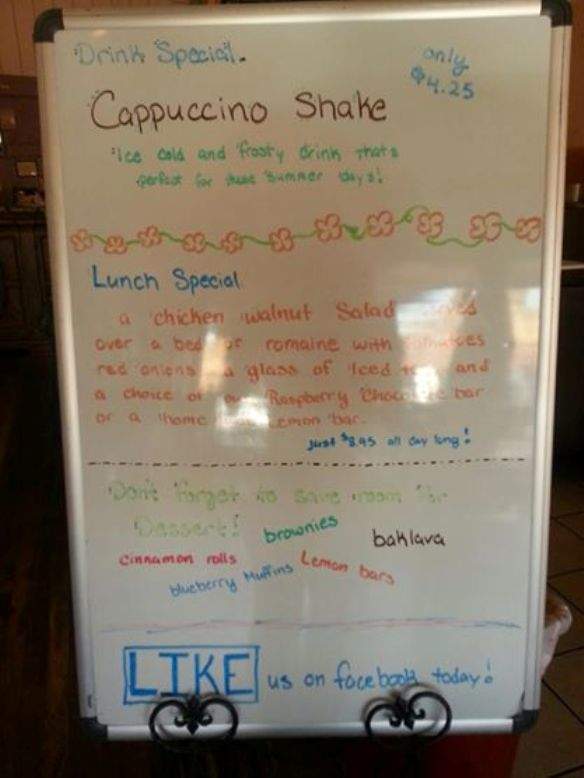 Drink Special.
only
$4.25
Cappuccino Shake
"Ice cold and frosty drink thats
perfect for these summer days!
Lunch Special
a chicken walnut Salad
over a bed of romaine with tomatoes
red onions a glass of Iced tea and
a choice of our Raspberry Chocolate bar
or a home Lemon bar.
just $8.95 all day long!
Don't forget to save room for
Dessert!
brownies
baklava
cinnamon rolls
blueberry Muffins
Lemon bars
LIKE us on facebook today!